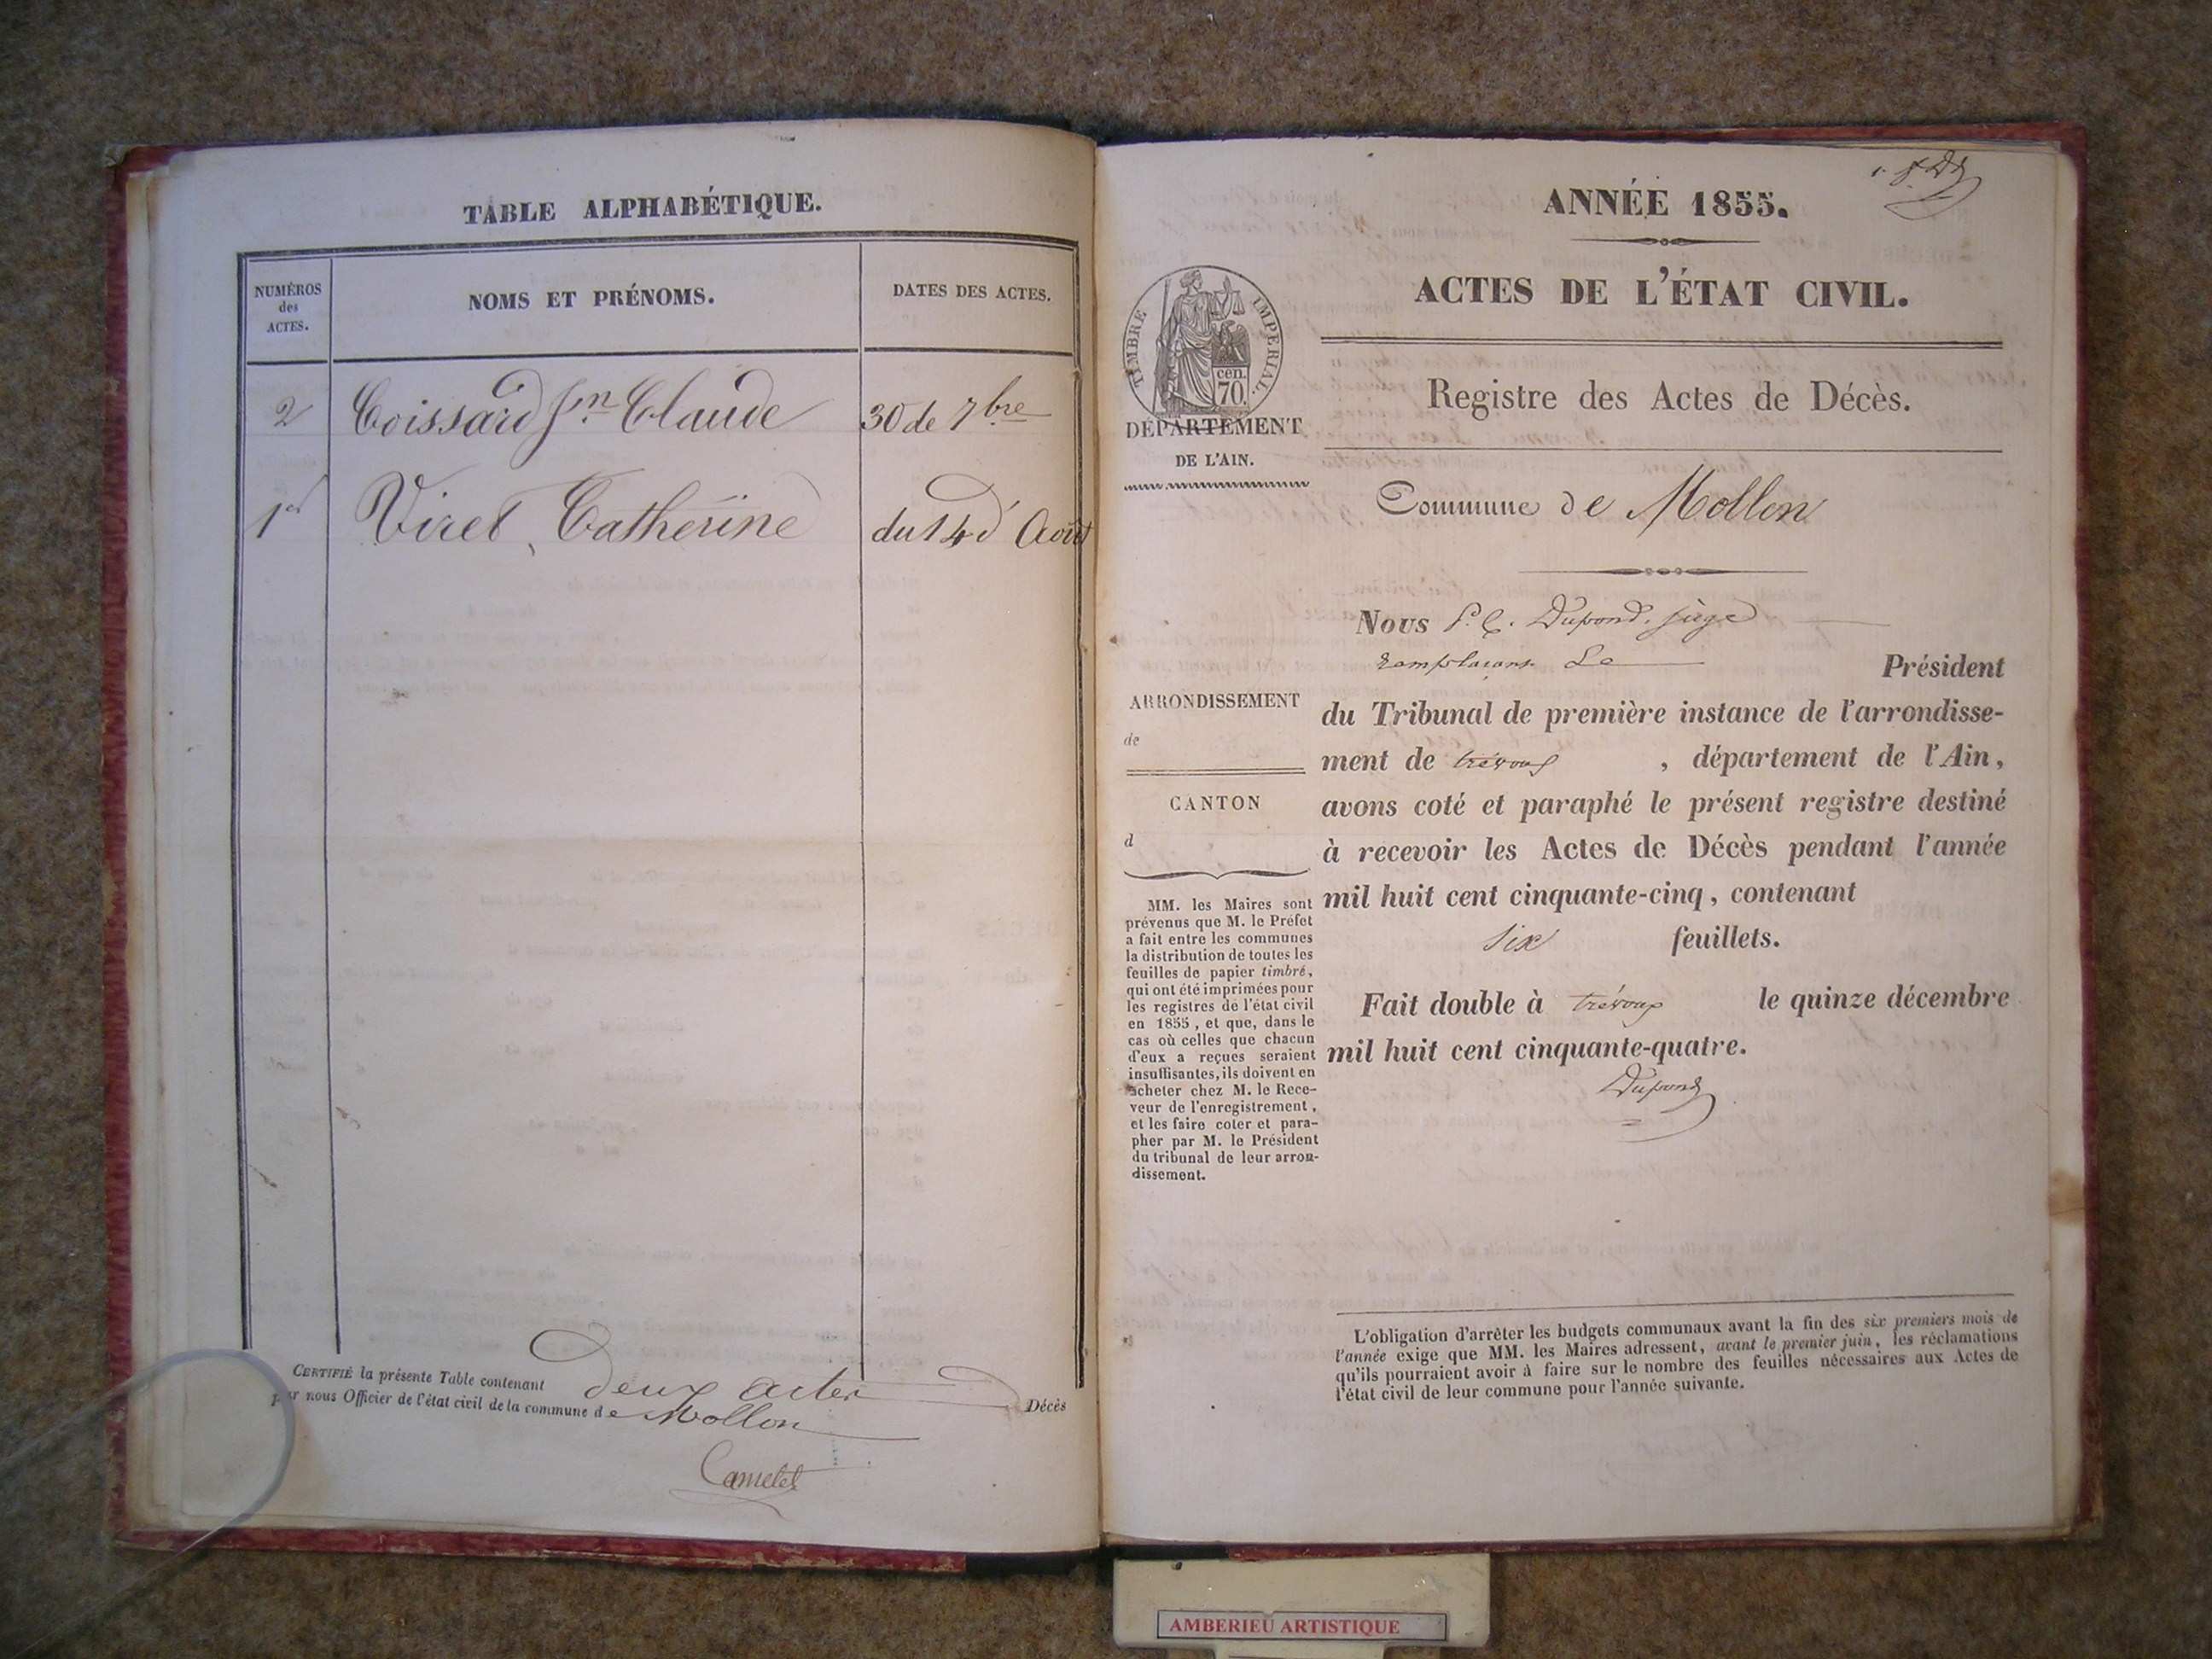 TABLE ALPHABÉTIQUE.
NUMÉROS
des
ACTES.
NOMS ET PRÉNOMS.
DATES DES ACTES.
2 Coissard Jn Claude 30 de 7bre
1er Viret, Catherine du 14 d' Août
CERTIFIÉ la présente Table contenant deux actes Décès
par nous Officier de l'état civil de la commune de Mollon
Camelet
ANNÉE 1855.
ACTES DE L'ÉTAT CIVIL.
TIMBRE IMPERIAL.
cen.
70.
DÉPARTEMENT
DE L'AIN.
Registre des Actes de Décès.
Commune de Mollon
Nous P. C. Dupond, juge
remplaçant Le Président
du Tribunal de première instance de l'arrondisse-
ment de trévoux , département de l'Ain,
avons coté et paraphé le présent registre destiné
à recevoir les Actes de Décès pendant l'année
mil huit cent cinquante-cinq, contenant
six feuillets.
Fait double à trévoux le quinze décembre
mil huit cent cinquante-quatre.
Dupond
ARRONDISSEMENT
de
CANTON
d
MM. les Maires sont
prévenus que M. le Préfet
a fait entre les communes
la distribution de toutes les
feuilles de papier timbré,
qui ont été imprimées pour
les registres de l'état civil
en 1855, et que, dans le
cas où celles que chacun
d'eux a reçues seraient
insuffisantes, ils doivent en
acheter chez M. le Rece-
veur de l'enregistrement,
et les faire coter et para-
pher par M. le Président
du tribunal de leur arron-
dissement.
L'obligation d'arrêter les budgets communaux avant la fin des six premiers mois de
l'année exige que MM. les Maires adressent, avant le premier juin, les réclamations
qu'ils pourraient avoir à faire sur le nombre des feuilles nécessaires aux Actes de
l'état civil de leur commune pour l'année suivante.
AMBERIEU ARTISTIQUE